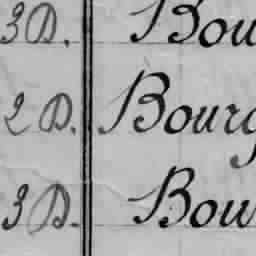 3 D. Bou
2 D. Bourg
3 D. Bou